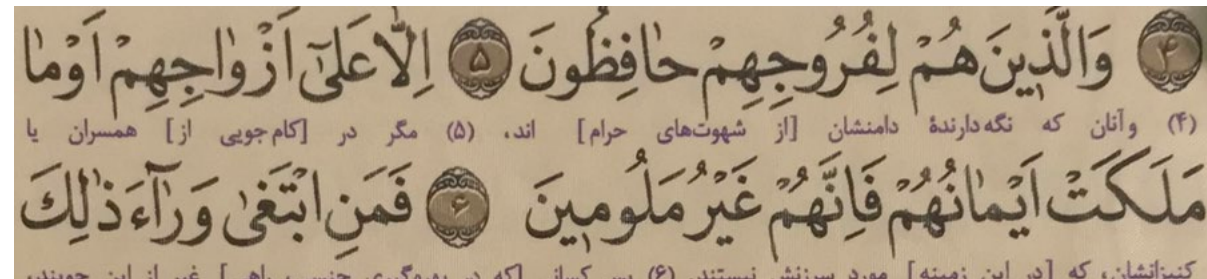 ﴿۴﴾ وَالَّذٖينَ هُمْ لِفُرُوجِهِمْ حَافِظُونَ ﴿۵﴾ اِلَّا عَلٰٓى اَزْوَاجِهِمْ اَوْ مَا
(۴) و آنان که نگه‌دارندهٔ دامنشان [از شهوت‌های حرام] اند، (۵) مگر در [کام‌جویی از] همسران یا
مَلَكَتْ اَيْمَانُهُمْ فَاِنَّهُمْ غَيْرُ مَلُومٖينَ ﴿۶﴾ فَمَنِ ابْتَغٰى وَرَآءَ ذٰلِكَ
کنیزانشان، که [در این زمینه] مورد سرزنش نیستند. (۶) پس کسانی [که در بهره‌گیری جنسی، راهی] غیر از این جویند،